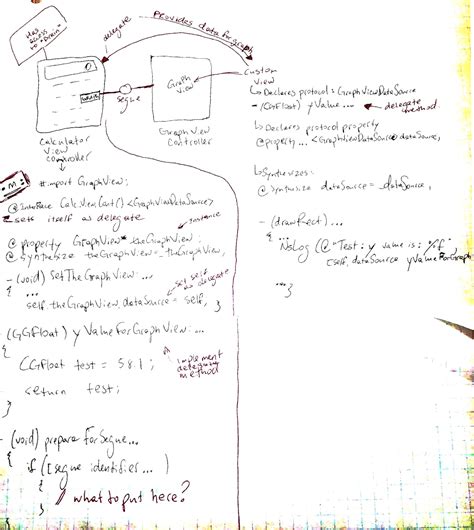 Has
access
to "Brain"
delegate
Provides data for graph
GRAPH
segue
Graph
View
custom
view
Calculator
View
controller
GraphView
Controller
↳ Declares protocol = GraphViewDataSource
- (CGFloat) yValue ...
delegate
method
↳ Declares protocol property
@property ... <GraphViewDataSource> dataSource;
↳ Synthesizes:
@Synthesize dataSource = _dataSource;
- (drawRect) ...
{ NsLog (@"Test: y value is: %f",
[self.dataSource yValueForGraph
...}
.m:
#import GraphView;
@Interface Calc.View.Cont() <GraphViewDataSource>
sets itself as delegate
instance
@property GraphView* theGraphView;
@Synthesize theGraphView = _theGraphView;
- (void) SetTheGraphView:
{ ...
set self
as delegate
self.theGraphView.dataSource = self; }
- (CGFloat) yValueForGraphView: ...
{
CGFloat test = 58.1;
implement
delegate
method
return test;
}
- (void) prepareForSegue...
{ if ([segue identifier...)
{
// what to put here?
}